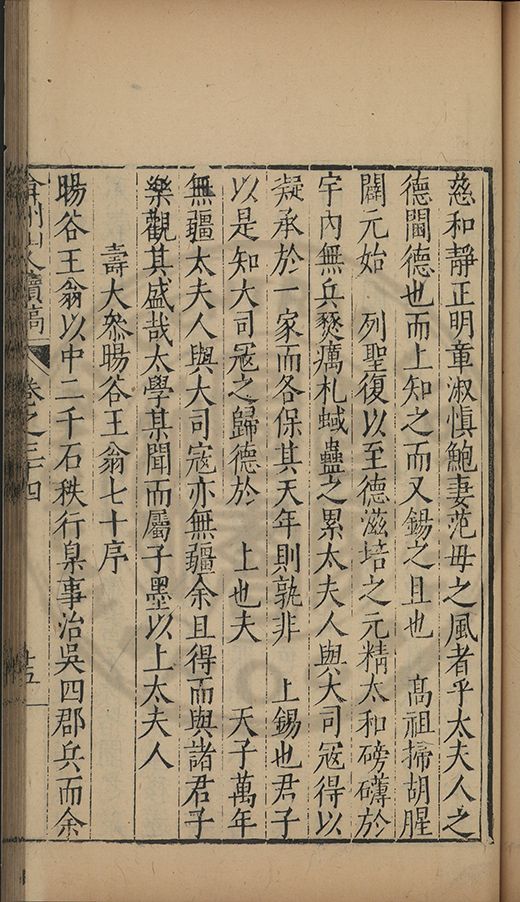 慈和靜正明章淑慎鮑妻范母之風者乎太夫人之
德閫德也而上知之而又錫之且也　高祖掃胡腥
闢元始　列聖復以至德滋培之元精太和磅礴於
宇內無兵燹癘札蜮蠱之累太夫人與大司寇得以
凝承於一家而各保其天年則孰非　上錫也君子
以是知大司寇之歸德於　上也夫　天子萬年
無疆太夫人與大司寇亦無疆余且得而與諸君子
樂觀其盛哉太學某聞而屬子墨以上太夫人
壽大叅暘谷王翁七十序
暘谷王翁以中二千石秩行臬事治吳四郡兵而余
弇州山人續稿　卷之三十四　十五